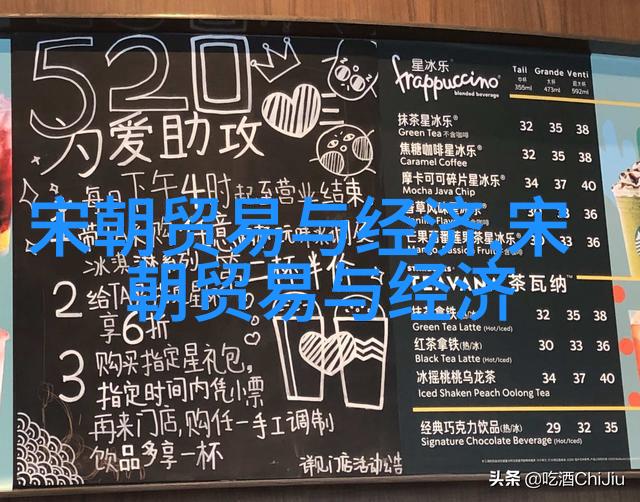 520
为爱助攻
每日下午4时起至营业结束
冰淇淋系列
半价
2 给TA
享6折
3 购买指定星礼包,
指定时间内凭小票
再来门店,购任一手工调制
饮品多享一杯
详见门店活动公告
宋朝贸易与经济 宋
朝贸易与经济
星冰乐®
frappuccino®
blended beverage
Tall Grande Venti
中杯 大杯 超大杯
355ml 473ml 592ml
抹茶星冰乐® 32 35 38
Green Tea 不含咖啡
焦糖咖啡星冰乐® 32 35 38
Caramel Coffee
摩卡可可碎片星冰乐® 34 37 40
Mocha Java Chip
茶瓦纳™
抹茶拿铁(热/冰) 32 35 38
Green Tea Latte (Hot/Iced)
红茶拿铁(热/冰) 30 33 36
Black Tea Latte (Hot/Iced)
冰摇桃桃乌龙茶 34 37 40
Iced Shaken Peach Oolong Tea
经典巧克力饮品(热/冰) 29 32 35
Signature Chocolate Beverage (Hot/Iced)
头条 @吃酒ChiJiu